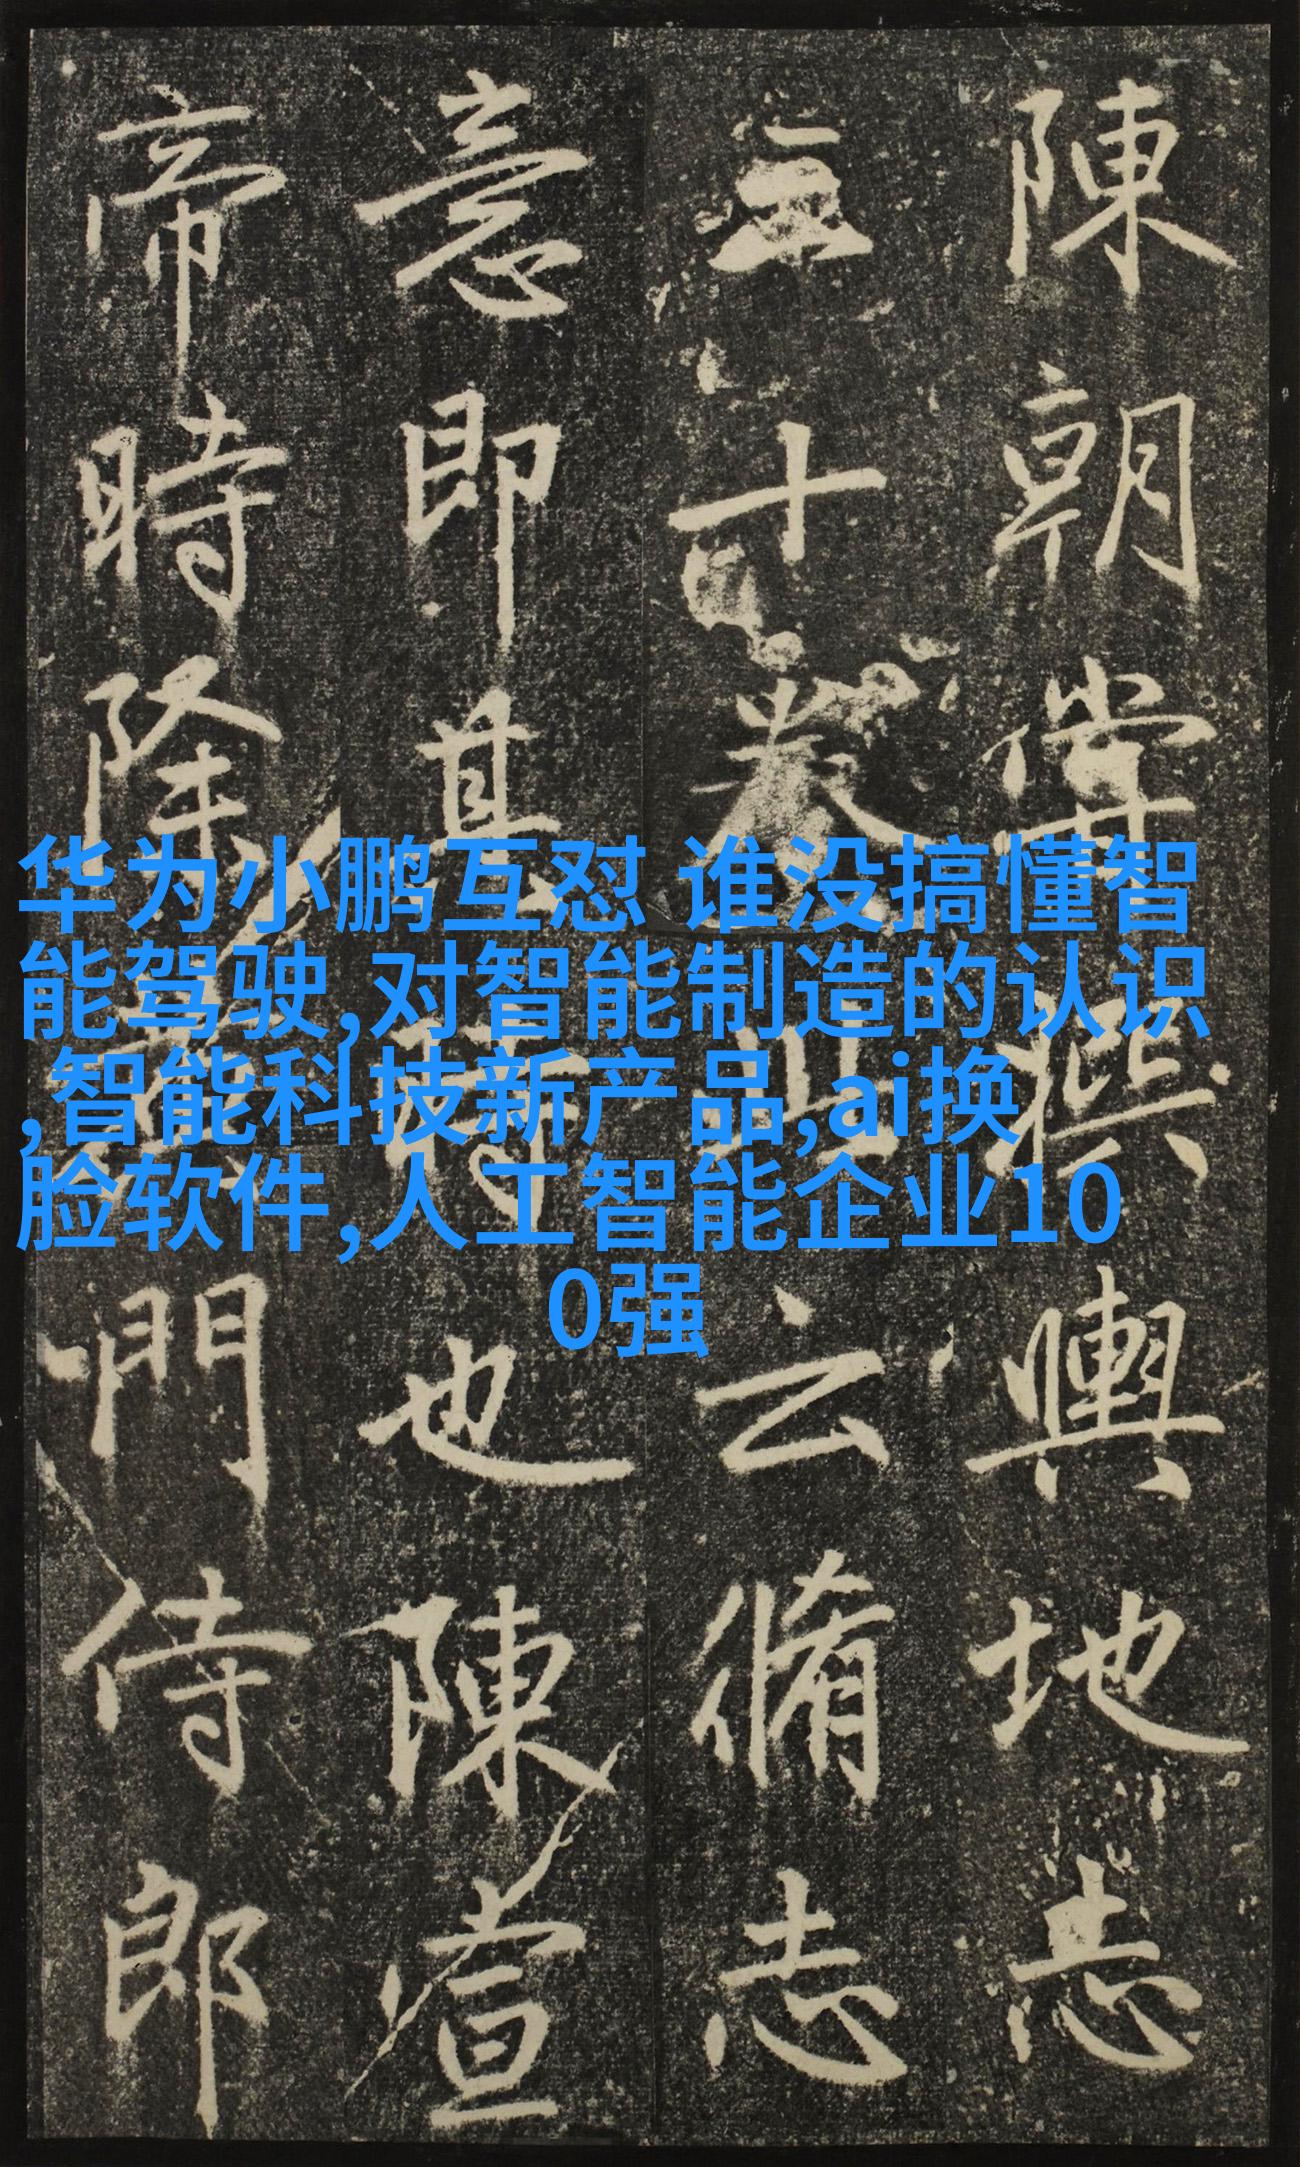 陳朝嘗撰輿地志
三十卷此云脩志
意即其時也陳宣
帝時除黃門侍郎
华为小鹏互怼 谁没搞懂智
能驾驶,对智能制造的认识
,智能科技新产品,ai换
脸软件,人工智能企业10
0强